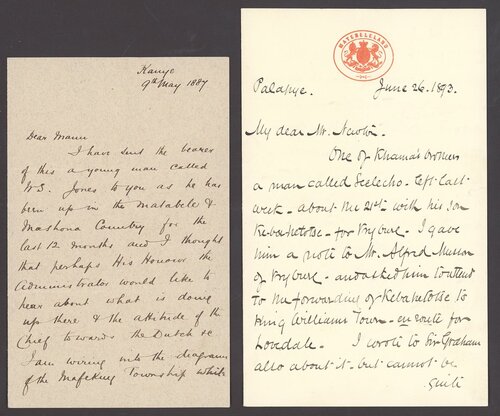 Kanye
9th May 1887
Dear Mann
I have sent the bearer
of this a young man called
W.S. Jones to you as he has
been up in the Matabele &
Mashona Country for the
last 12 months and I thought
that perhaps His Honour the
Administrator would like to
hear about what is doing
up there & the attitude of the
Chief towards the Dutch &c
I am wiring with the diagram
of the Mafeking Township while
MATEBELELAND
Palapye. June 26. 1893.
My dear Mr. Newton.
One of Khama's brothers
a man called Seeletso - left last
week - about the 21st with his son
Kebahetotse - for Vryburg. I gave
him a note to Mr. Alfred Musson
of Vryburg - and asked him to attend
to the forwarding of Kebahetotse to
King Williams Town - en route for
Lovedale. I wrote to Sir Graham
also about it - but cannot be
quite